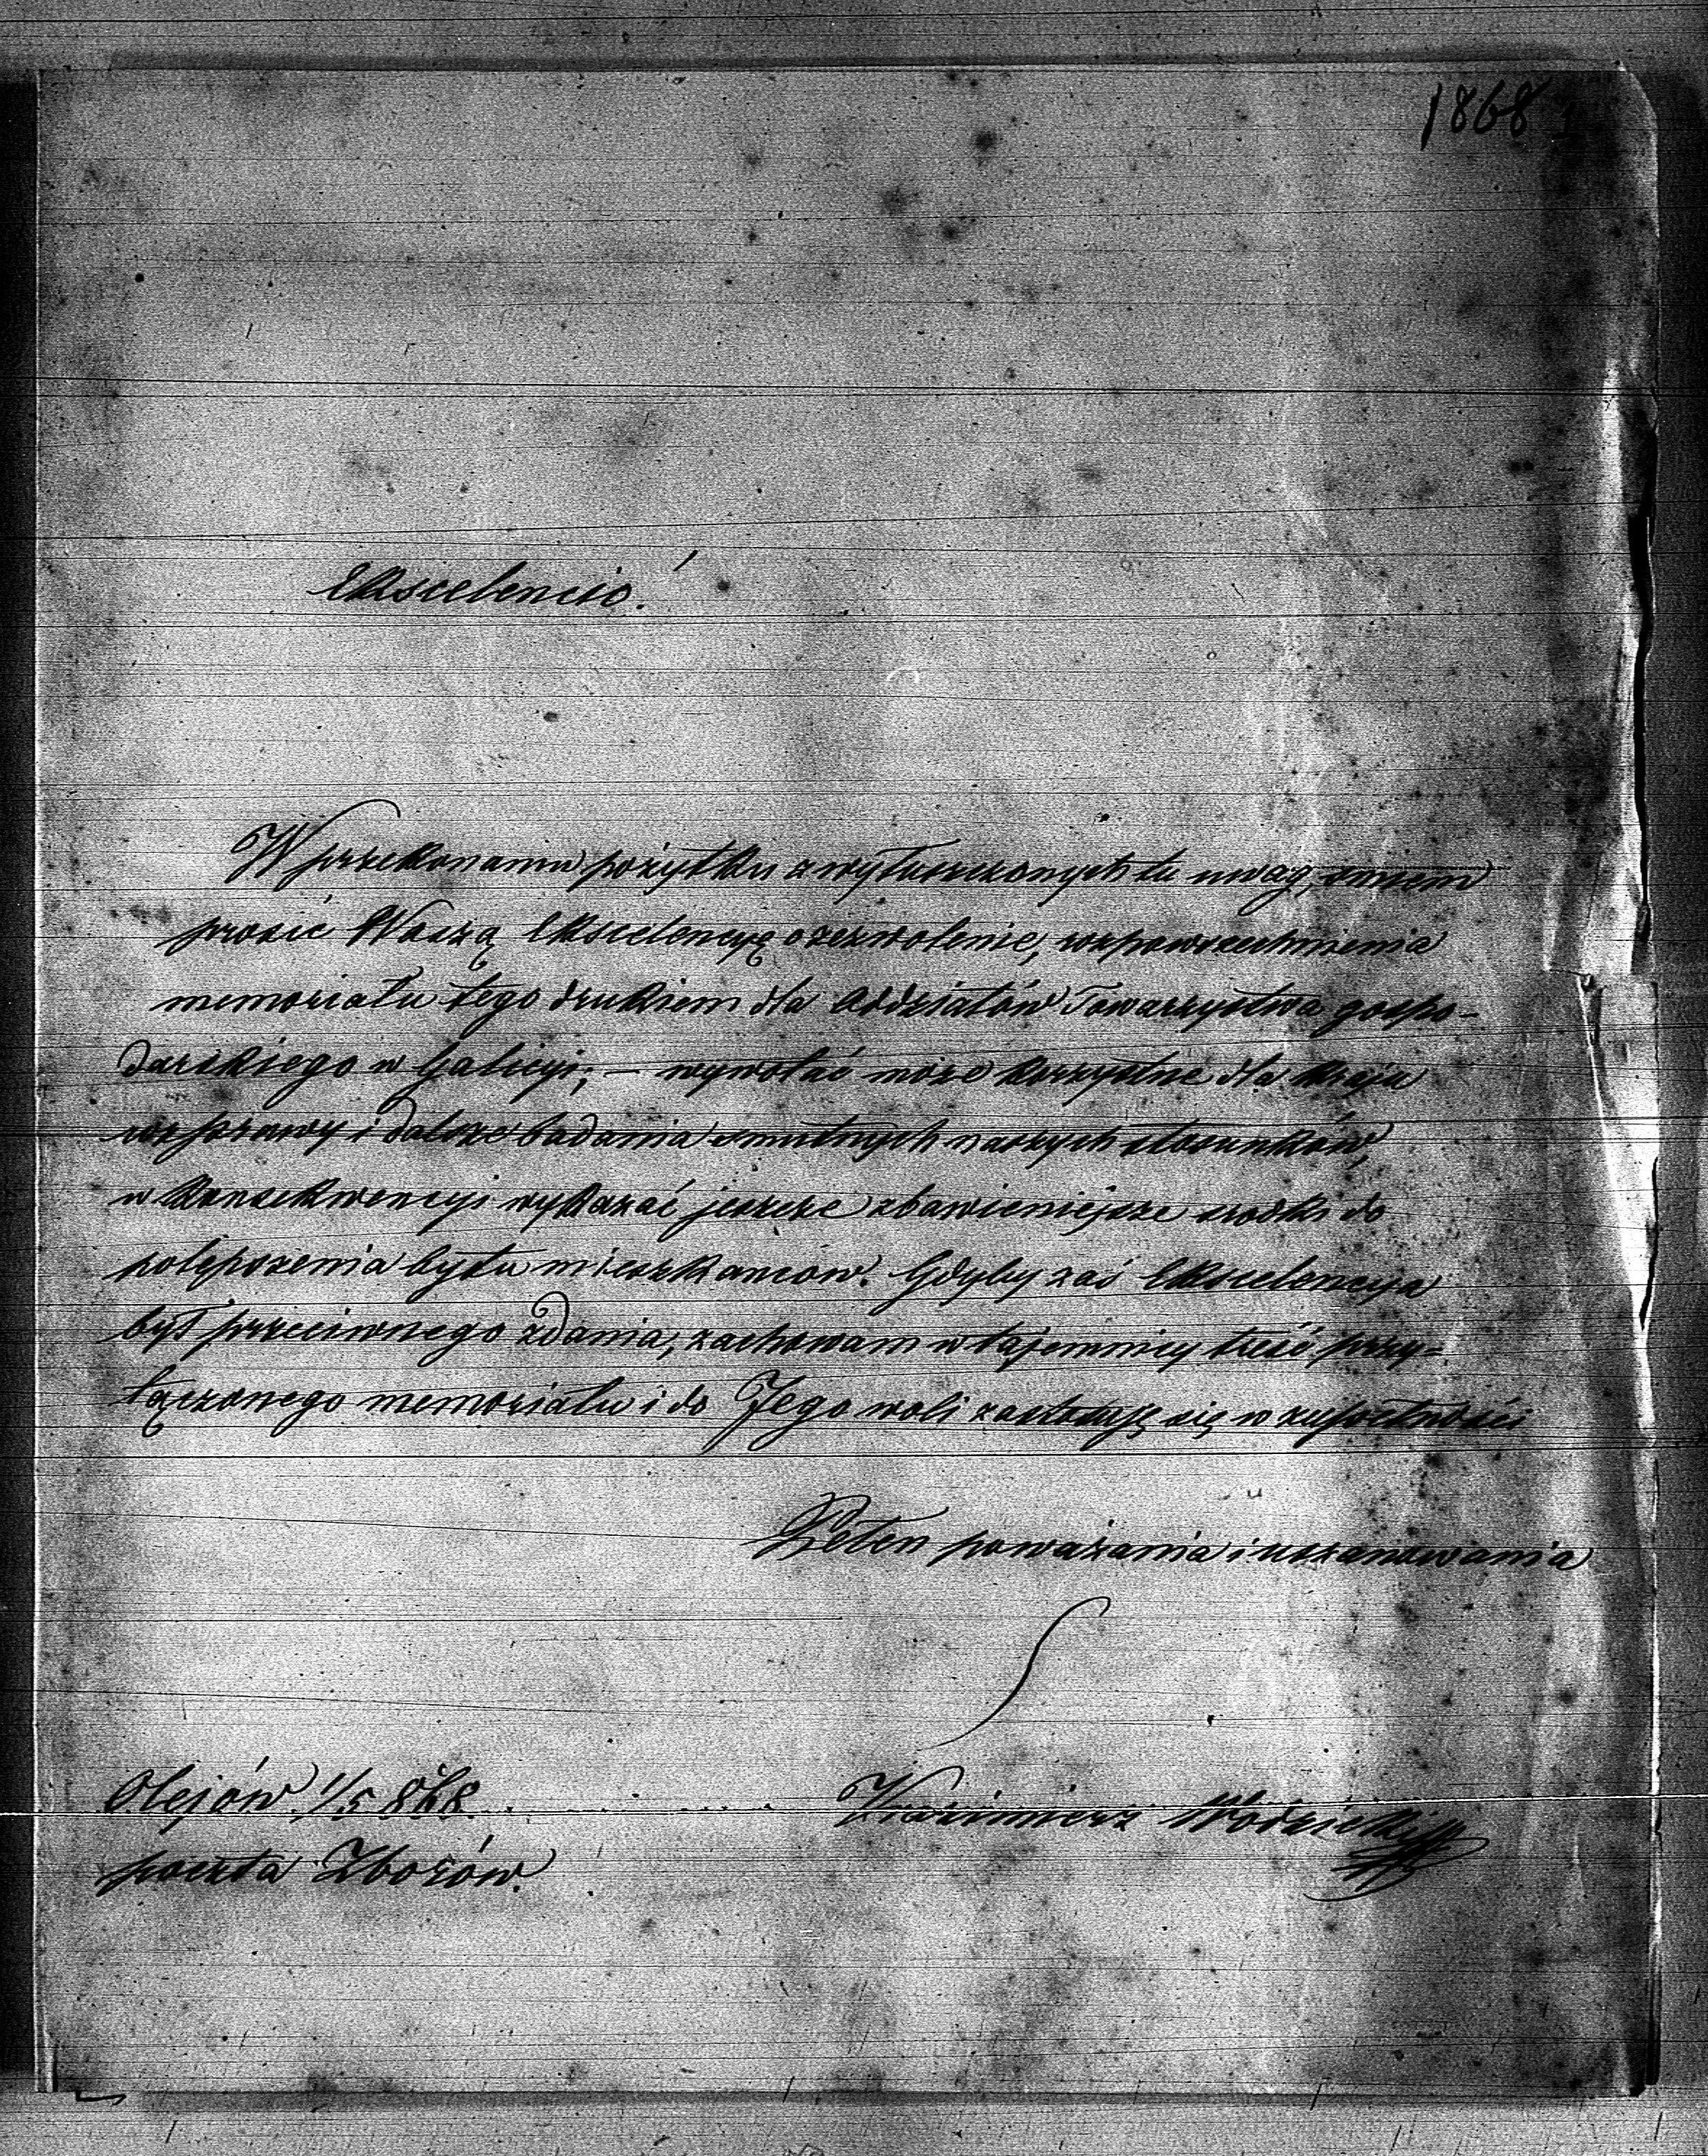 1868 1
Ekscelencio!
W przekonaniu pożytku z wyłuszczonych tu uwag, śmiem
prosić Waszą Ekscelencyę o zezwolenie, rozpowszechnienia
memoriału tego drukiem dla Oddziałów Towarzystwa gospo-
darskiego w Galicyi; – wywołać może korzystne dla kraju
rozprawy i dalsze badania smutnych naszych stosunków,
w konsekwencyi wykazać jeszcze zbawieniejsze srodki do
polępszenia bytu mieszkancow. Gdyby zaś Ekscelencya
był przeciwnego zdania, zachowam w tajemnicy treść przy-
łączonego memoriału i do Jego woli zastosuję się w zupełności
Pełen poważania i uszanowania
Olejów 1/5 868.
Kazimierz Wodzicki
poczta Zborów.